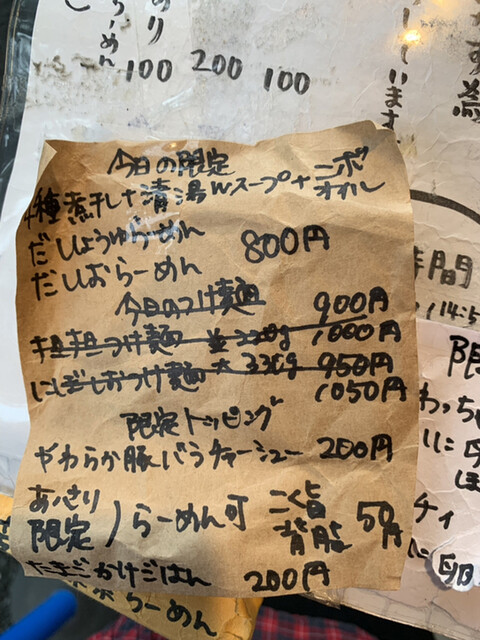 あり
らーめん
100 200 100
しています
今日の限定
4種煮干し+清湯Wスープ+ニボオイル
だしょうゆらーめん 800円
だしおらーめん
今日のつけ麺 900円
担担つけ麺 並220g 1000円
にぼしおつけ麺 大330g 950円
1050円
限定トッピング
やわらか豚バラチャーシュー 200円
あっさり限定)らーめん可 こく旨背脂 50円
たまごかけごはん 200円
らーめん
時間
限
わっち